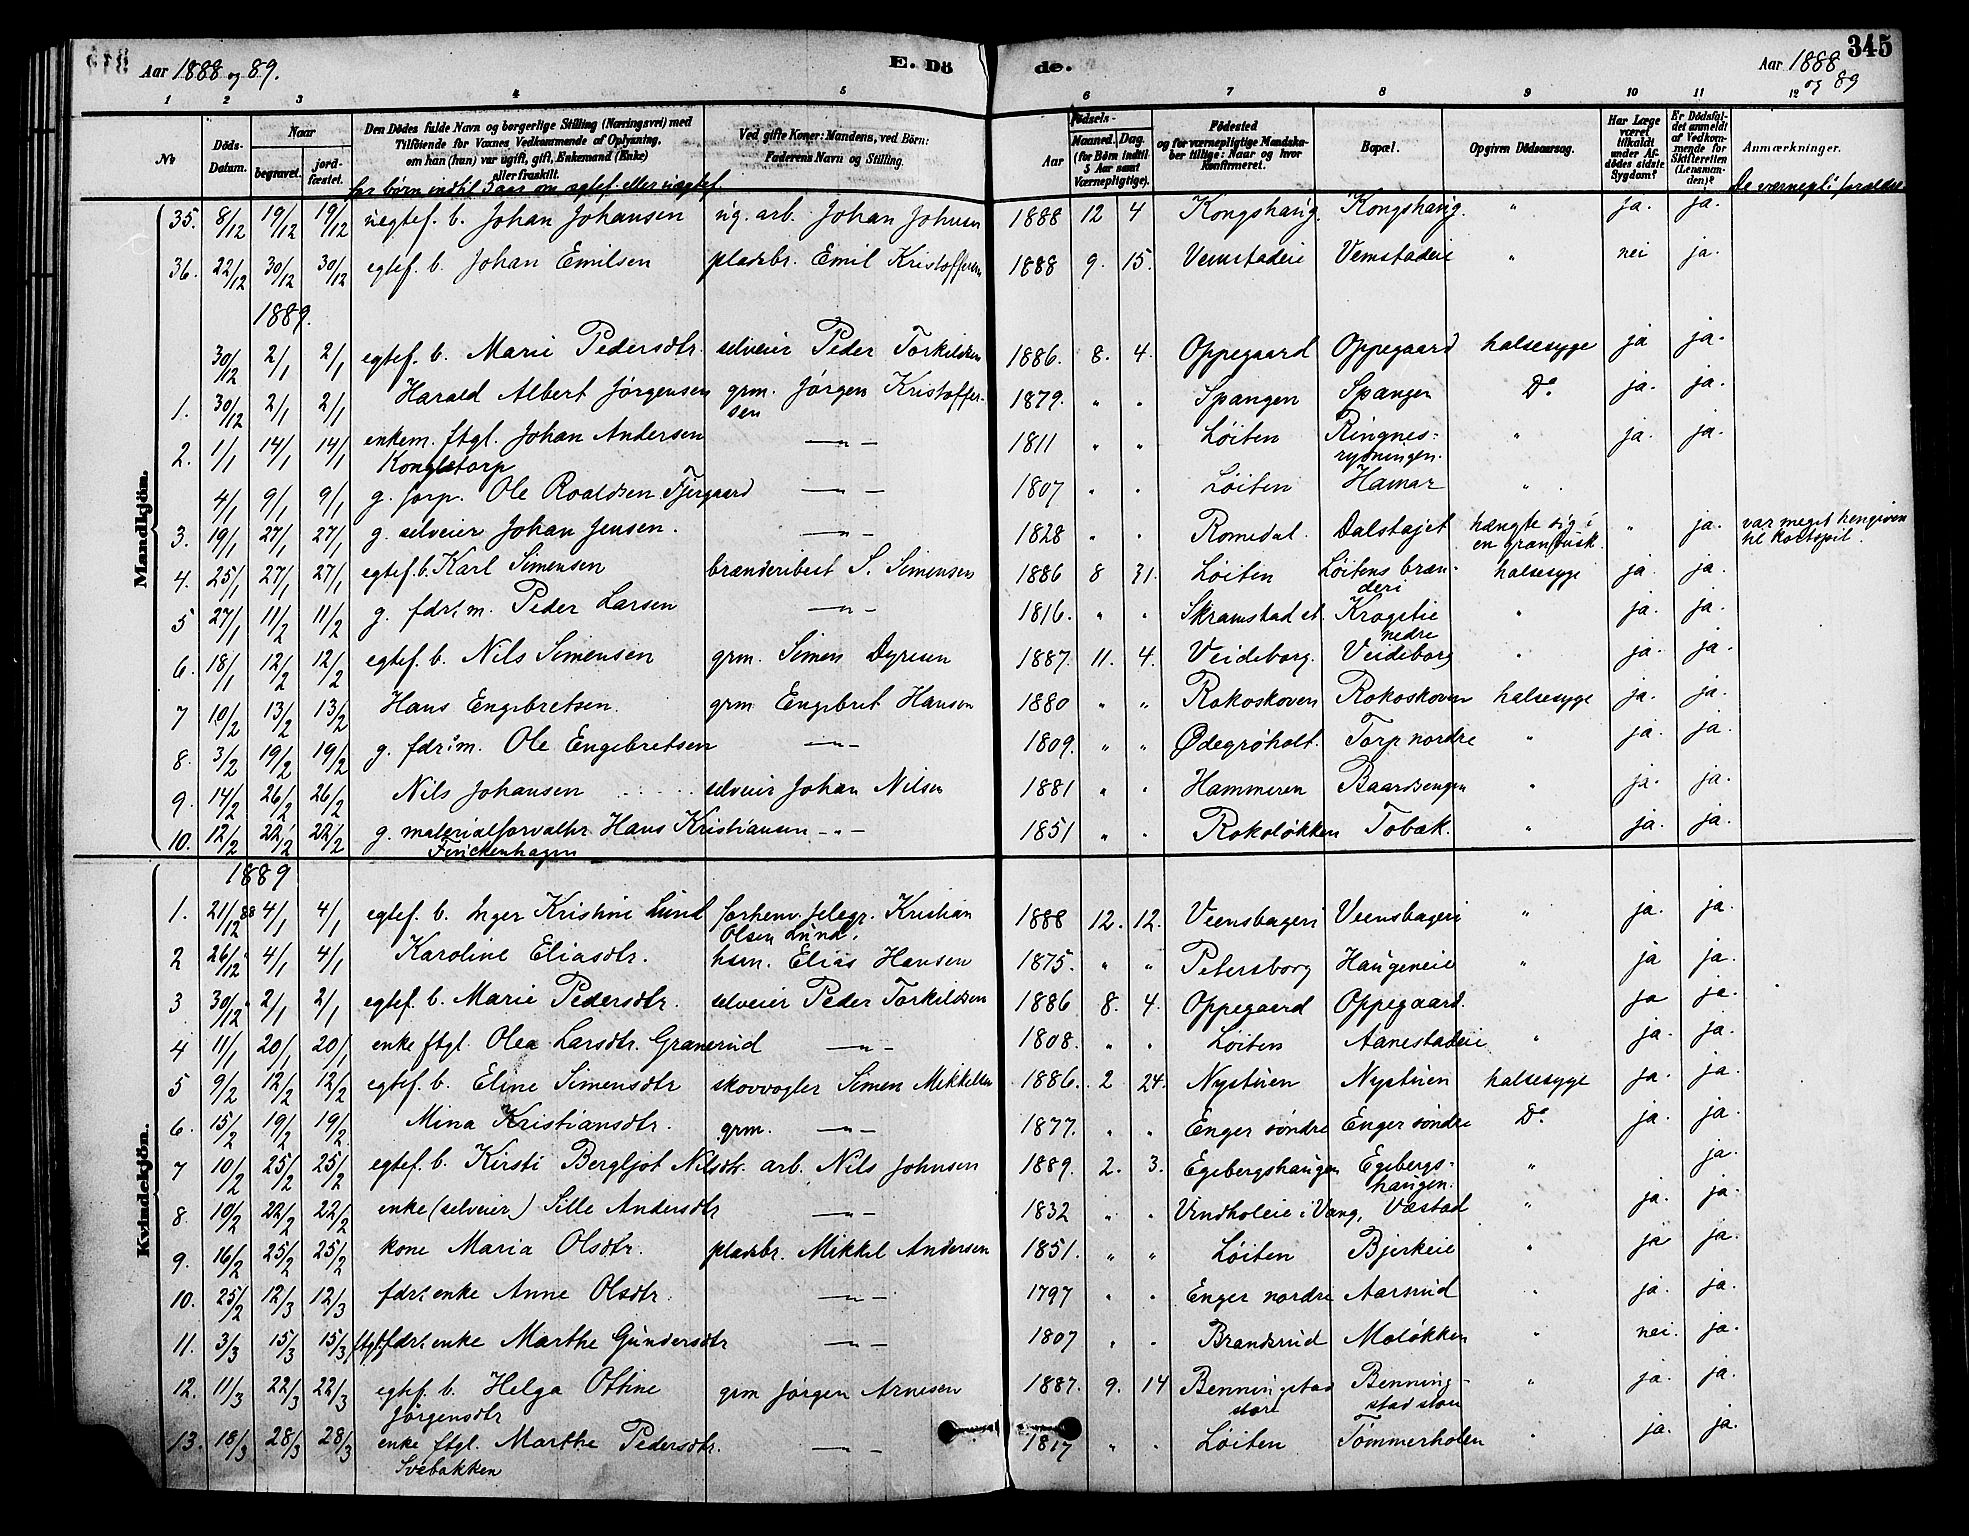 345
Aar 1888 og 89. E. Dö de. Aar 1888 og 89
1 2 3 4 5 6 7 8 9 10 11 12
No
Döds-Datum.
Naar
begravet.
jord-fæstet.
Den Dödes fulde Navn og borgerlige Stilling (Næringsvei) med
Tilföiende for Voxnes Vedkommende af Oplysning,
om han (hun) var ugift, gift, Enkemand (Enke)
eller fraskilt.
for børn indtil 5 aar om egtef. eller uegtef.
Ved gifte Koner: Mandens, ved Börn:
Faderens Navn og Stilling.
Födsels-
Aar
Maaned. Dag.
(for Börn indtil
5 Aar samt
Værnepligtige).
Födested
og for værnepligtige Mandska-
ber tillige: Naar og hvor
Konfirmeret.
Bopæl.
Opgiven Dödsaarsag.
Har Læge
været
tilkaldt
under Af-
dödes sidste
Sygdom?
Er Dödsfal-
det anmeldt
af Vedkom-
mende for
Skifteretten
(Lensman-
den)?
Anmærkninger.
De værnepl:s forældre
Mandkjön.
35. 8/12 19/12 19/12 uegtef. b. Johan Johansen ug. arb. Johan Johnsen 1888 12 4 Kongshaug. Kongshaug. " ja. ja.
36. 22/12 30/12 30/12 egtef. b. Johan Emilsen pladsbr. Emil Kristoffersen 1888 9. 15. Vemstadeie Vemstadeie " nei ja.
1889.
30/12 2/1 2/1 egtef. b. Marie Pedersdtr. selveier Peder Torkildsen 1886. 8. 4. Oppegaard Oppegaard halsesyge ja ja.
1. 30/12 2/1 2/1 Harald Albert Jørgensen grm. Jørgen Kristoffer-
sen 1879. " " Spangen Spangen Do ja. ja.
2. 1/1 14/1 14/1 enkem. ftgl. Johan Andersen
Kongletorp —"— 1811 " " Løiten Ringnes-
rydningen. " ja. ja.
4/1 9/1 9/1 g. forp. Ole Roaldsen Fjergaard —"— 1807 " " Løiten Hamar "
3. 19/1 27/1 27/1 g. selveier Johan Jensen. —"— 1828 " " Romedal. Dalstøjet hængte sig i
en granbusk. " ja. var meget hengiven
til kortspil.
4. 25/1 27/1 27/1 egtef. b. Karl Simensen brænderibest S. Simensen 1886 8 31. Løiten Løitens bræn-
deri halsesyge ja. ja.
5 27/1 11/2 11/2 g. fdr:m. Peder Larsen —"— 1816. " " Skramstad et. Krogstie
nedre " ja. ja.
6. 18/1 12/2 12/2 egtef. b. Nils Simensen grm. Simen Dyresen 1887. 11. 4. Veideborg. Veideborg " ja. ja.
7 10/2 13/2 13/2 Hans Engebretsen. grm Engebret Hansen 1880 " " Rokoskoven Rokoskoven halsesyge ja. ja.
8. 3/2 19/2 19/2 g. fdr:m. Ole Engebretsen —"— 1809. " " Ødegrøholt. Torp nordre " ja. ja.
9. 14/2 26/2 26/2 Nils Johansen selveier Johan Nilsen 1881 " " Hammeren Baardsengen " ja. ja.
10. 12/2 22/2 22/2 g. materialforvaltr Hans Kristiansen
Finckenhagen —"— 1851 " " Rokoløkken Tobak. " ja. ja.
Kvindekjön.
1889
1. 21/12 88 4/1 4/1 egtef. b. Inger Kristine Lund forhenv. telegr. Kristian
Olsen Lund. 1888 12. 12. Veensbageri Veensbageri " ja. ja.
2 26/12 " 4/1 4/1 Karoline Eliasdtr. hsm. Elias Hansen 1875. " " Petersborg Haugeneie " ja ja.
3 30/12 " 2/1 2/1 egtef. b. Marie Pedersdtr. selveier Peder Torkildsen 1886 8. 4. Oppegaard Oppegaard. ja ja.
4 11/1 20/1 20/1 enke ftgl. Olea Larsdtr. Granerud —"— 1808. " " Løiten Aanestadeie " ja. ja.
5 9/2 12/2 12/2 egtef. b. Eline Simensdtr skovvogter Simen Mikkelsen 1886. 2 24. Nystuen Nystuen halsesyge ja. ja.
6. 15/2 19/2 19/2 Mina Kristiansdtr. grm. —"— 1877. " " Enger søndre Enger søndre Do ja. ja.
7 10/2 25/2 25/2 egtef. b. Kirsti Bergljot Nilsdtr. arb. Nils Johnsen 1889. 2. 3. Egebergshaugen Egebergs-
haugen. " ja.
8. 10/2 22/2 22/2 enke (selveier) Sille Andersdtr —"— 1832 " " Vindholeie i Vang, Væstad " ja. ja.
9. 16/2 25/2 25/2 kone Maria Olsdtr. pladsbr. Mikkel Andersen 1851. " " Løiten Bjerkeie " ja ja.
10. 25/2 12/3 12/3 fdr: enke Anne Olsdtr. —"— 1797 " " Enger nordre Aarsrud " ja. ja.
11. 3/3 15/3 15/3 ftgl. fdr: enke Marthe Gundersdtr —"— 1807 " " Brandsrud Moløkken " nei. ja.
12. 11/3 22/3 22/3 egtef. b. Helga Othine
Jørgensdtr grm Jørgen Arnesen 1887. 9. 14 Benningstad
store Benning-
stad store " ja. ja.
13. 18/3 28/3 28/3 enke ftgl. Marthe Pedersdtr.
Svebakken —"— 1817 " " Løiten Tømmerholen " ja. ja.